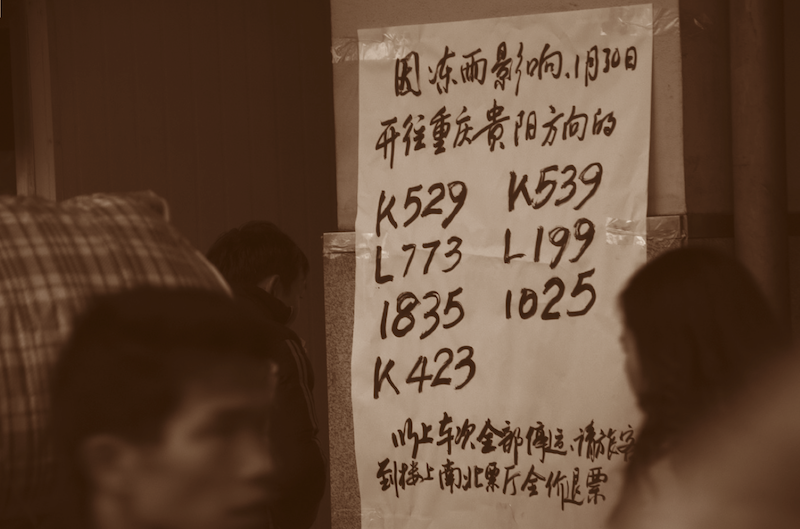 因冻雨影响、1月30日
开往重庆貴阳方向的
K529 K539
L773 L199
1835 1025
K423
以上车次全部停运、请旅客
到楼上南北票厅全价退票